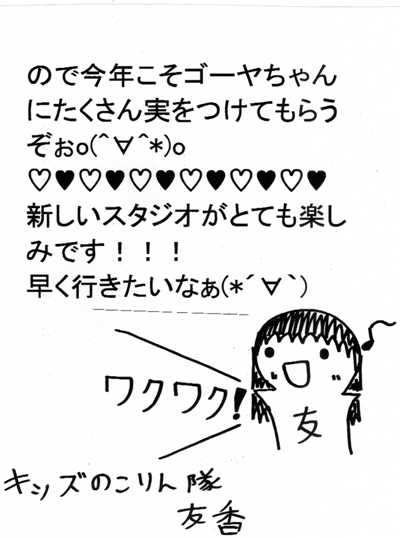 ので今年こそゴーヤちゃん
にたくさん実をつけてもらう
ぞぉo(^∀^*)o
♡♥♡♥♡♥♡♥♡♥♡♥
新しいスタジオがとても楽し
みです!!!
早く行きたいなぁ(*´∀`)
ワクワク!
友
キッズのこりん隊
友香